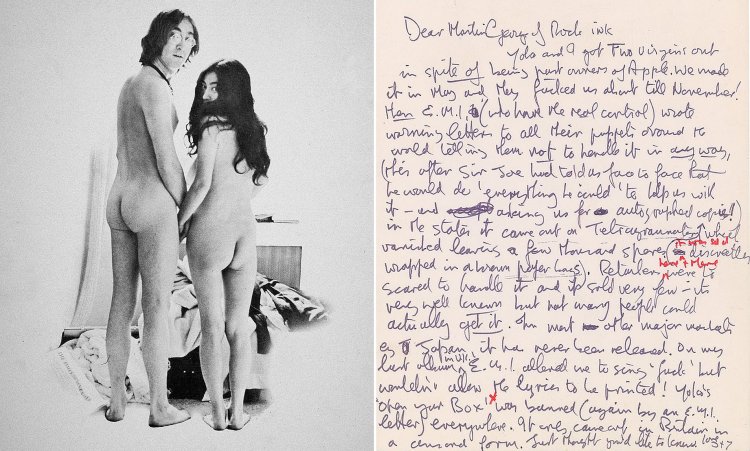 Dear Martin George of Rock ink
Yoko and I got Two Virgins out
in spite of being part owners of Apple. We made
it in May and they fucked us about till November!
Then E.M.I. (who have the real control) wrote
warning letters to all their puppets around the
world telling them not to handle it in any way,
(this after Sir Joe had told us face to face that
he would do 'everything he could' to help us with
it – and asking us for autographed copies!)
in the states it came out on Tetragrammaton which
vanished leaving a few thousand spares (it was sold discreetly
wrapped in a brown paper bag). Retailers here + there were to
scared to handle it and it sold very few – its
very well known but not many people could
actually get it. In most other major markets
eg Japan it has never been released. On my
last album in U.K. E.M.I. allowed me to sing 'fuck' but
wouldn't allow the lyrics to be printed! Yoko's
'Open your Box' was banned (again by an E.M.I.
letter) everywhere. It only came out in Britain in
a censored form. Just thought you'd like to know